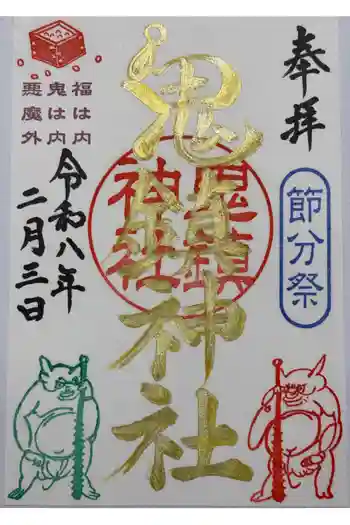 奉拝
節分祭
鬼鎮神社
鬼鎮神社
福は内
鬼は内
悪魔外
令和八年
二月三日